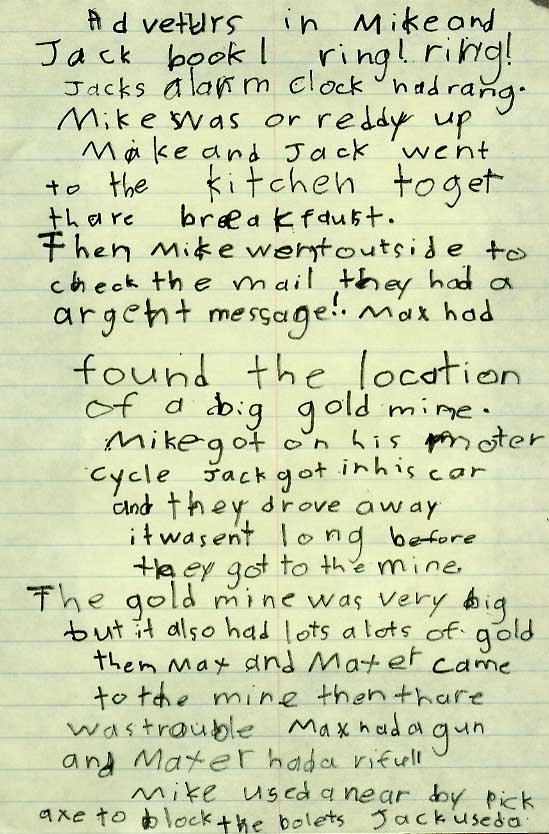 Adveturs in Mike and
Jack book 1 ring! ring!
Jacks alarm clock had rang.
Mike was or reddy up
Make and Jack went
to the kitchen to get
thare breakfaust.
Then Mike went outside to
check the mail they had a
argent message!. Max had
found the location
of a big gold mine.
Mike got on his moter
cycle Jack got in his car
and they drove away
it wasent long before
they got to the mine.
The gold mine was very big
but it also had lots a lots of gold
them Max and Maxer came
to the mine then thare
was trouble Max had a gun
and Maxer had a rifull
Mike used a near by pick
axe to block the bolets Jack used a